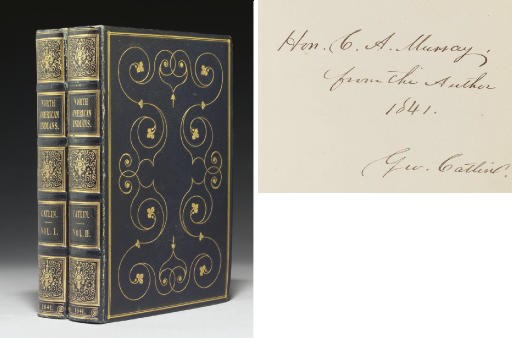 NORTH
AMERICAN
INDIANS.
CATLIN.
VOL. I.
1841
NORTH
AMERICAN
INDIANS.
CATLIN.
VOL. II.
1841
Hon. C. A. Murray,
from the Author
1841.
Geo. Catlin.